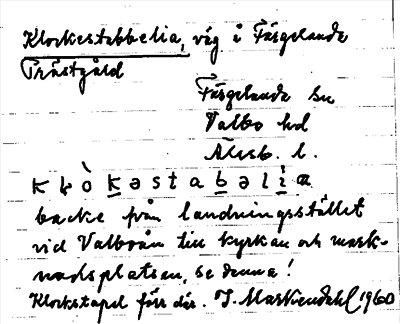 Klockestabbelia, väg i Färgelanda
Prästgård
Färgelanda sn
Valbo hd
Älvsb. l.
backe från landningsstället
vid Valboån till kyrkan och mark-
nadsplatsen, se denna!
Klockstapel förr där. I. Markendahl 1960